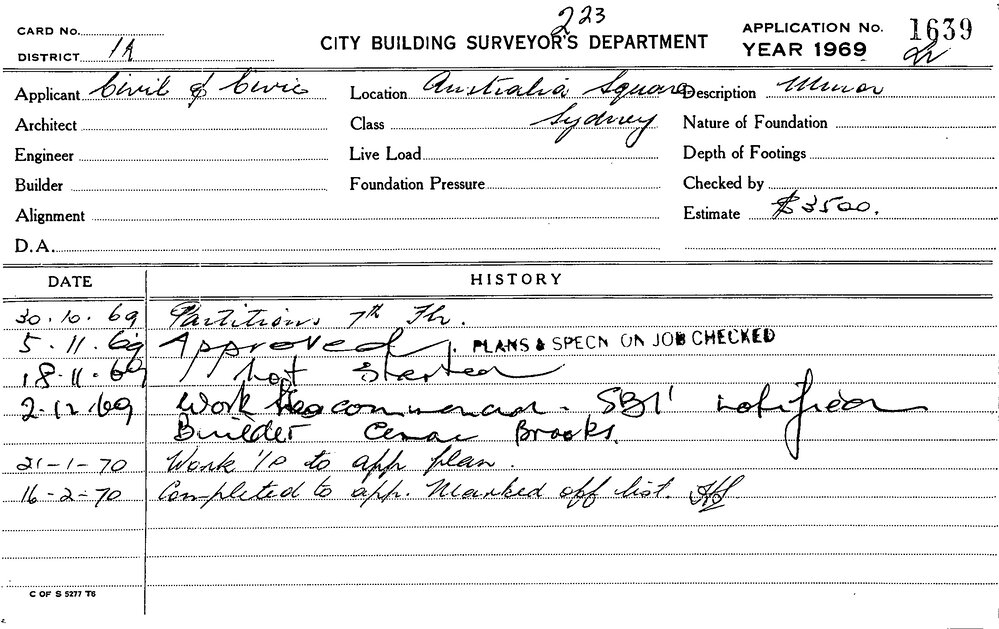 223
CARD No.
CITY BUILDING SURVEYOR'S DEPARTMENT
APPLICATION No. 1639
DISTRICT 1A
YEAR 1969
Applicant Civil & Civic Location Australia Square Description Minor
Architect Class Sydney Nature of Foundation
Engineer Live Load Depth of Footings
Builder Foundation Pressure Checked by
Alignment Estimate $3500.
D.A.
DATE HISTORY
30.10.69 Partitions 7th Flr.
5.11.69 Approved PLANS & SPECN ON JOB CHECKED
18.11.69 not started
2.12.69 Work has commenced. SBI notified
Builder Brooks.
21-1-70 Work I/P to app plan.
16-2-70 Completed to app. Marked off list.
C OF S 5277 T6